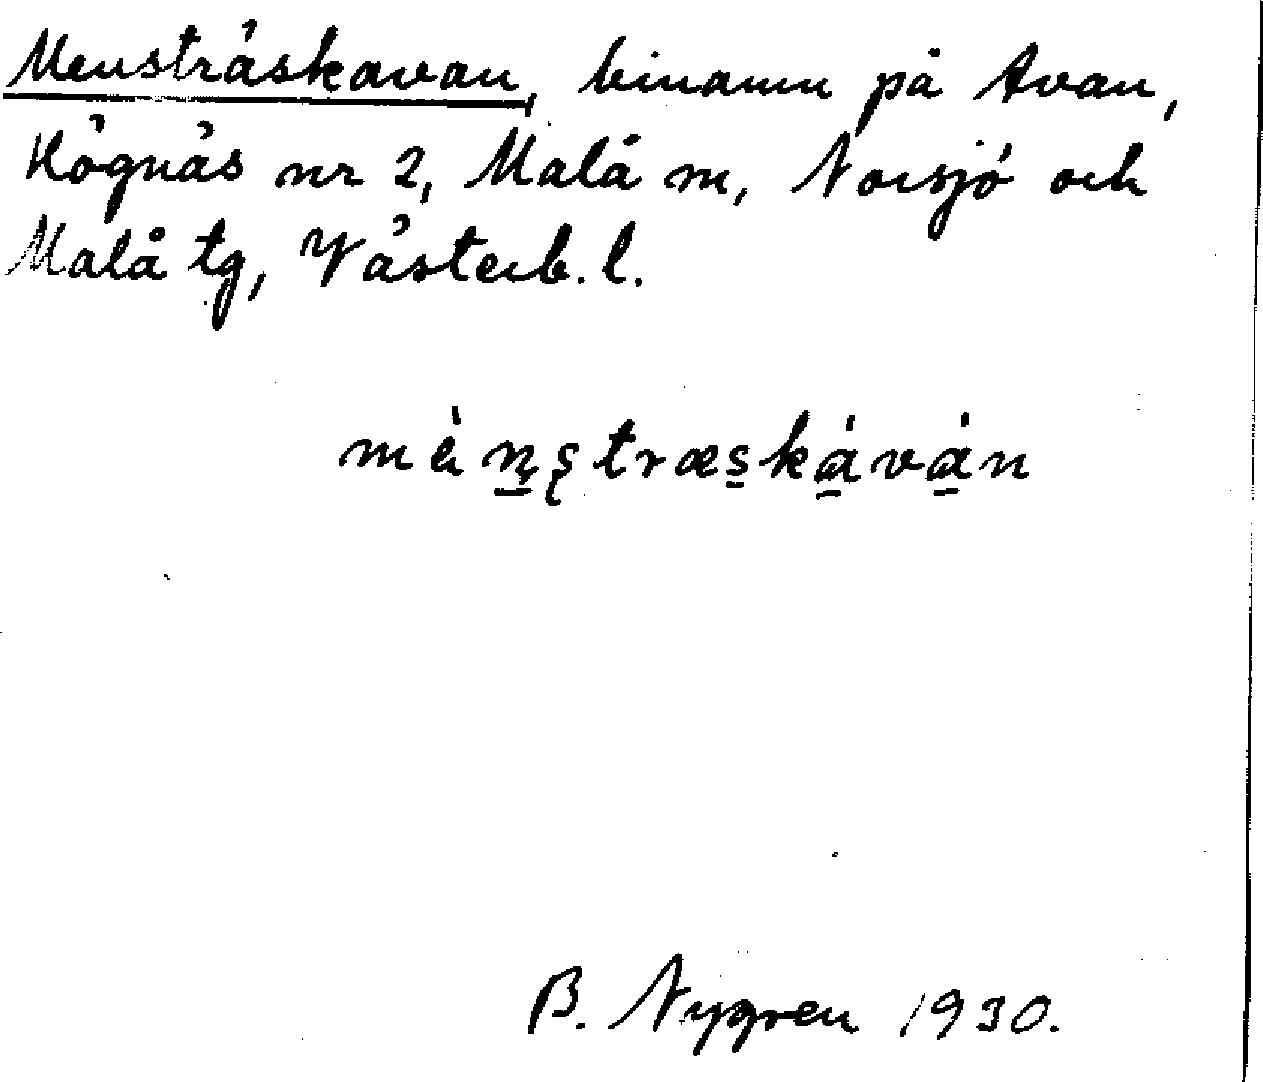 Mensträskavan, binamn på Avan,
Högnäs nr 2, Malå sn, Norsjö och
Malå tg, Västerb. l.
mèn̲ʂtræs̲ka̲̍va̲̍n
B. Nygren 1930.